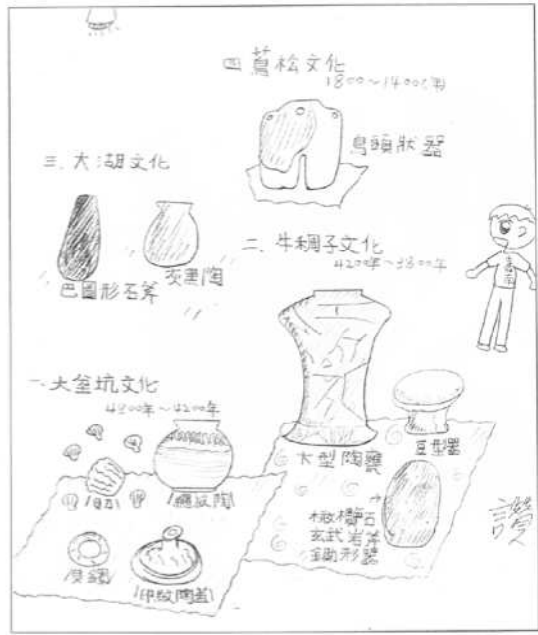 四 蔦松文化
1800～1400年
鳥頭狀器
三、大湖文化
巴圖形石斧
灰黑陶
二、牛稠子文化
4200年～3800年
一、大坌坑文化
4800年～4200年
大型陶甕
豆型器
繩紋陶
橄欖石
玄武岩斧
鋤形器
印紋陶蓋
讚